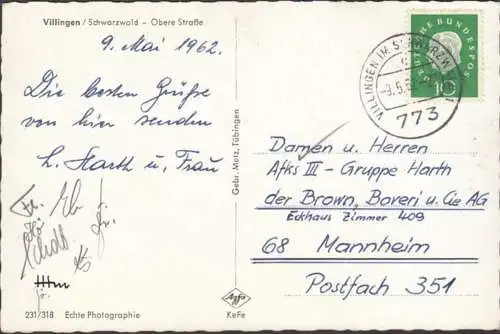 Villingen / Schwarzwald - Obere Straße
9. Mai 1962.
Die besten Grüße
von hier senden
H. Harth u. Frau
231/318 Echte Photographie
Gebr. Metz, Tübingen
Agfa
KeFe
DEUTSCHE BUNDESPOST
10
VILLINGEN IM SCHWARZWALD
-9.5.62
773
Damen u. Herren
Afks III - Gruppe Harth
der Brown, Boveri u. Cie AG
Eckhaus Zimmer 409
68 Mannheim
Postfach 351